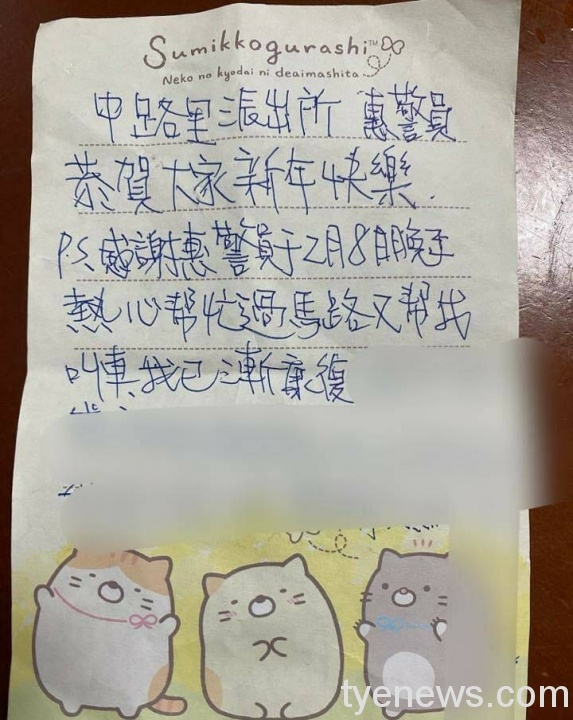 Sumikkogurashi™
Neko no kyodai ni deaimashita
中路里派出所 惠警員
恭賀大家新年快樂.
P.S.感謝惠警員于2月8日晚上
熱心幫忙過馬路又幫我
叫車,我已漸康復
tyenews.com